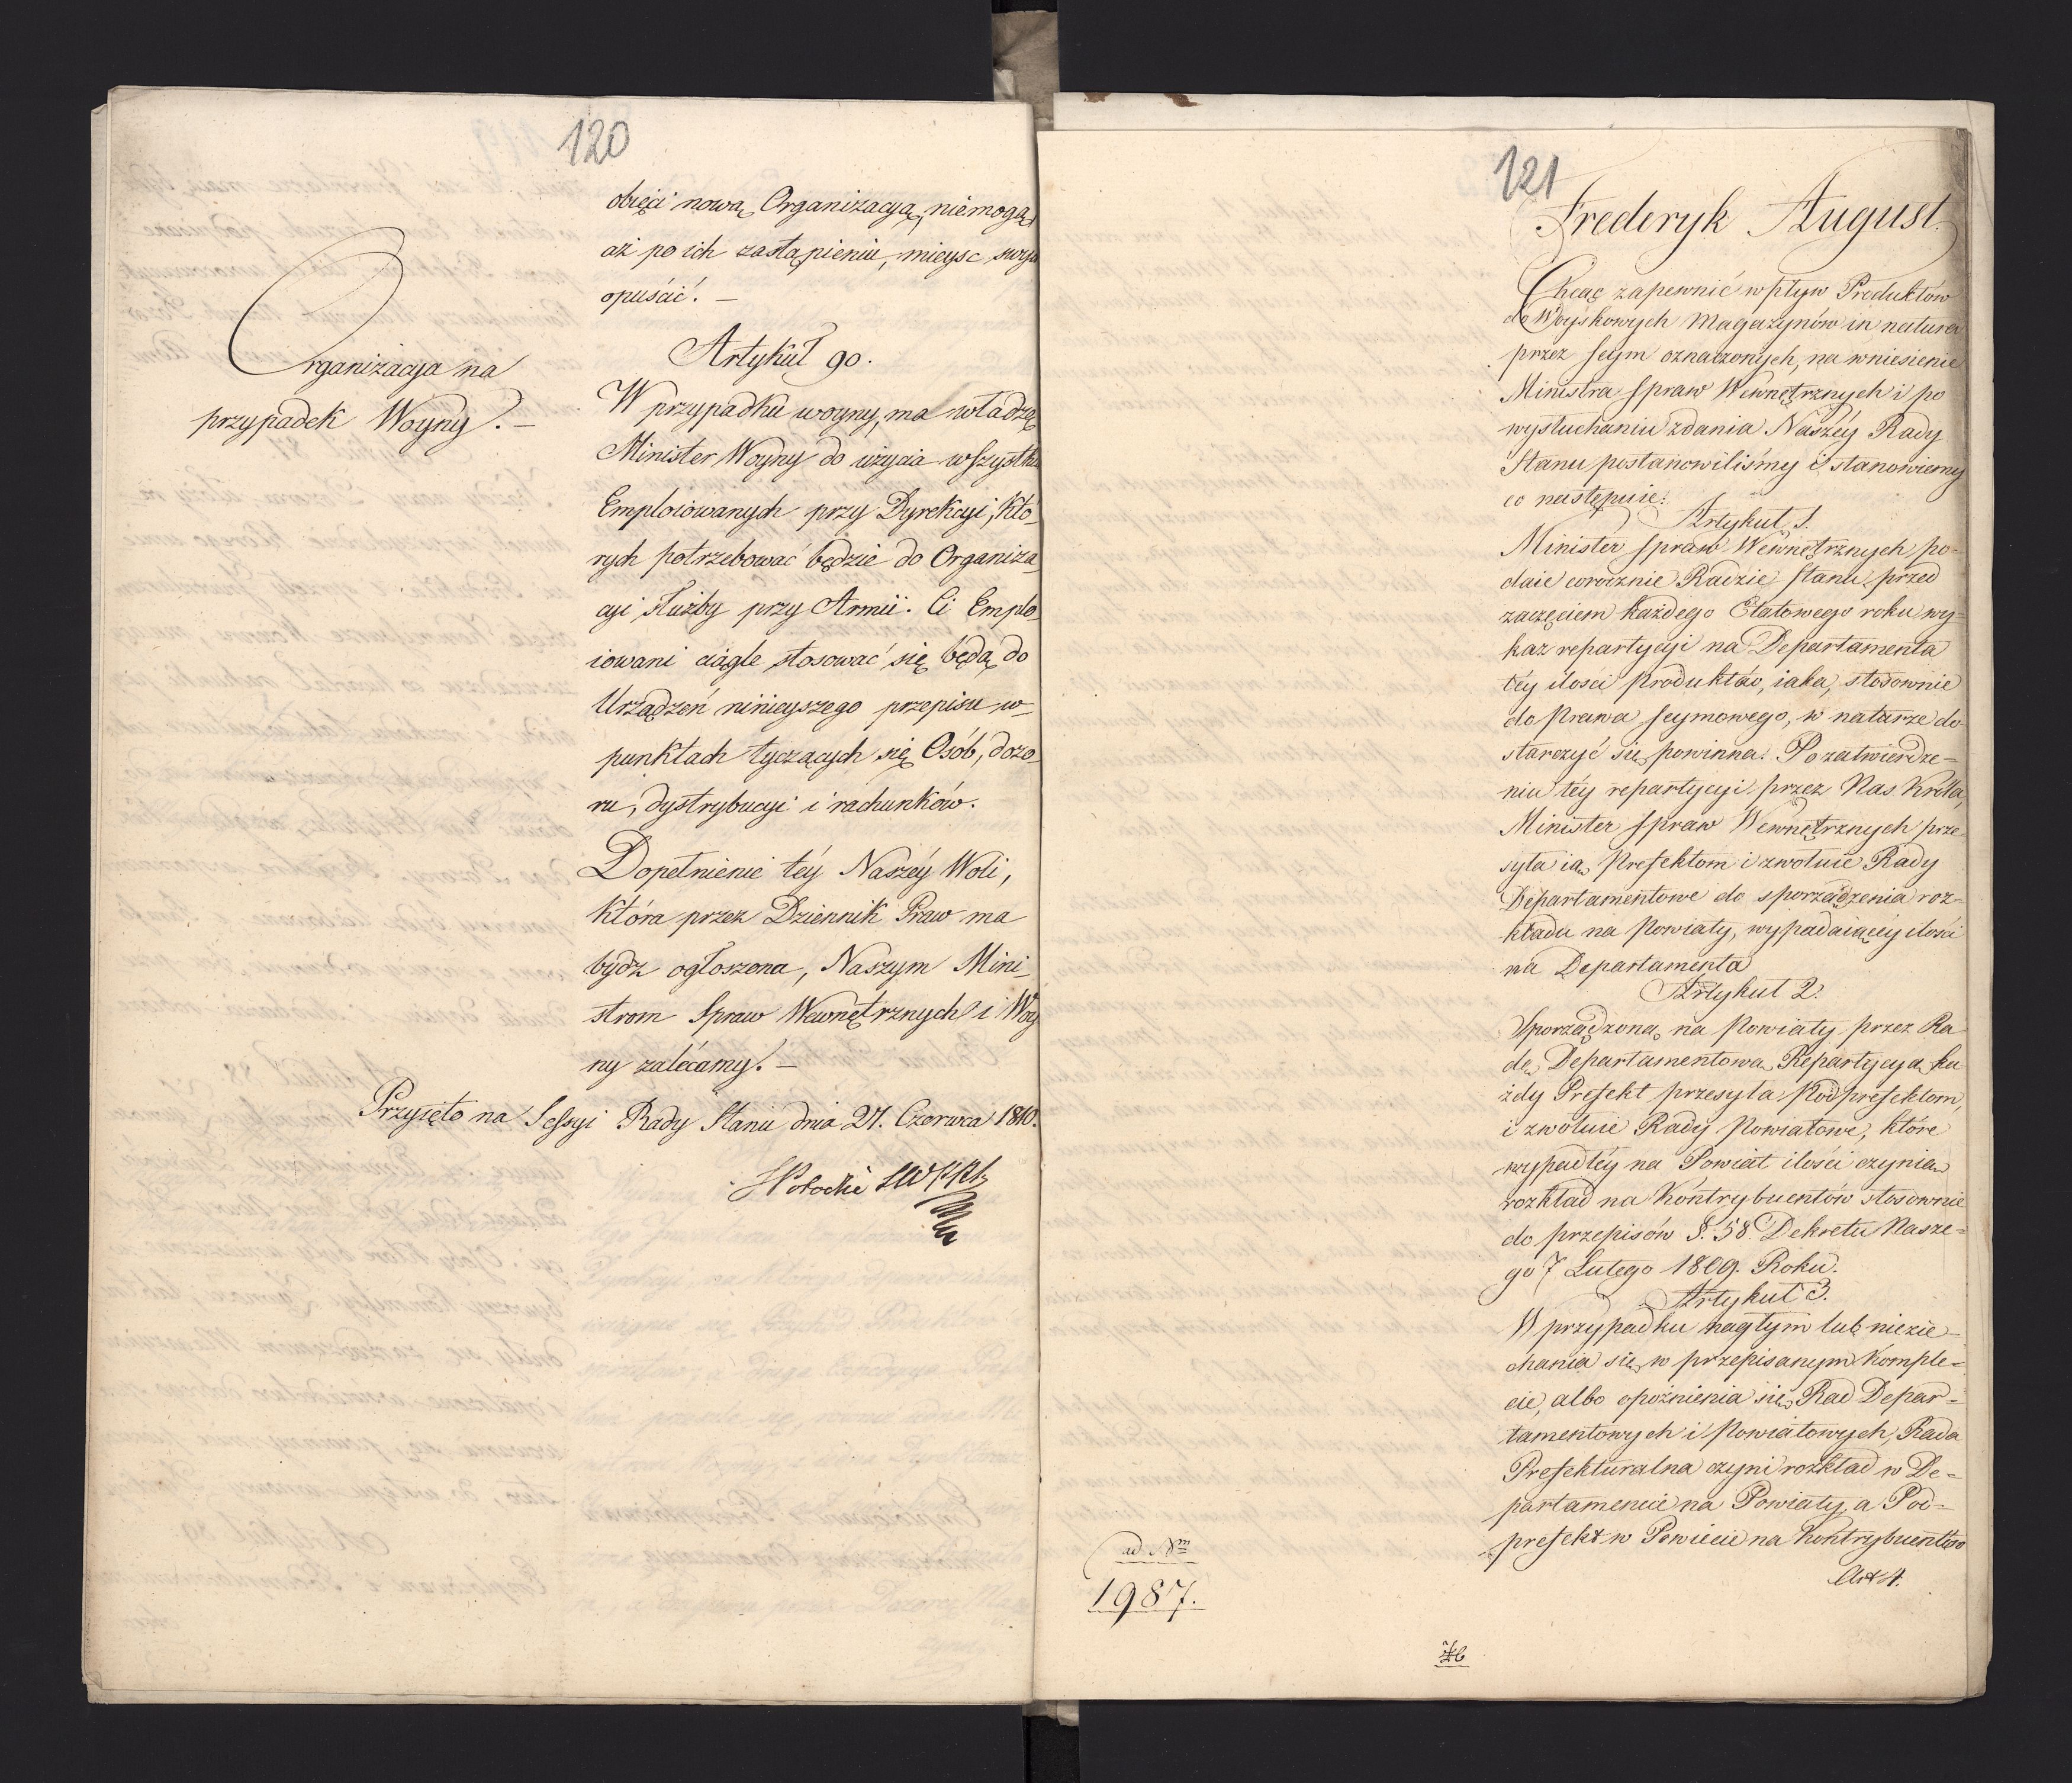 120
obięci nową Organizacyą, niemogą,
aż po ich zastąpieniu, mieysc swych
opuścić. —
Organizacya na
przypadek Woyny. —
Artykuł 90.
W przypadku woyny, ma władzę
Minister Woyny do użycia wszystkich
Emploiowanych przy Dyrekcyi, któ-
rych potrzebować będzie do Organiza-
cyi służby przy Armii. Ci Emplo-
iowani ciągle stosować się będą do
Urządzeń ninieyszego przepisu w-
punktach tyczących się Osób, dozo-
ru, dystrybucyi i rachunków.
Dopełnienie téy Naszéy Woli,
która przez Dziennik Praw ma
bydź ogłoszona, Naszym Mini-
strom Spraw Wewnętrznych i Woy
ny zalecamy. —
Przyięto na Sessyi Rady Stanu dnia 27. Czerwca 1810.
121
Frederyk August.
Chcąc zapewnić wpływ Produktów
do Woyskowych Magazynów in natura
przez seym oznaczonych, na wniesienie
Ministra spraw Wewnętrznych i po
wysłuchaniu zdania Naszéy Rady
Stanu postanowiliśmy i stanowiemy
co następuie:
Artykuł 1.
Minister spraw Wewnętrznych po-
daie corocznie Radzie stanu przed
zaczęciem każdego Etatowego roku wy-
kaz repartycyi na Departamenta
téy ilości produktów, iaka, stosownie
do Prawa seymowego, w naturze do
starczyć się powinna. Po zatwierdze-
niu téy repartycyi przez Nas Króla,
Minister spraw Wewnętrznych prze-
syła ią Prefektom i zwołuie Rady
Departamentowe do sporządzenia roz-
kładu na Powiaty, wypadaiącéy ilości
na Departamenta
Artykuł 2.
Sporządzoną na Powiaty przez Ra
dę Departamentową Repartycyą ka
żdy Prefekt przesyła Podprefektom,
i zwołuie Rady Powiatowe, które
wypadłéy na Powiat ilości czynią
rozkład na Kontrybuentów stosownie
do przepisów §. 58. Dekretu Nasze-
go 7 Lutego 1809. Roku.
Artykuł 3.
W przypadku nagłym lub niezie-
chania się w przepisanym komple-
cie, albo opóźnienia się Rad Depar-
tamentowych i Powiatowych, Rada
Prefekturalna czyni rozkład w De-
partamencie na Powiaty, a Pod-
prefekt w Powiecie na Kontrybuentów
Art 4.
ad Nm
1987.